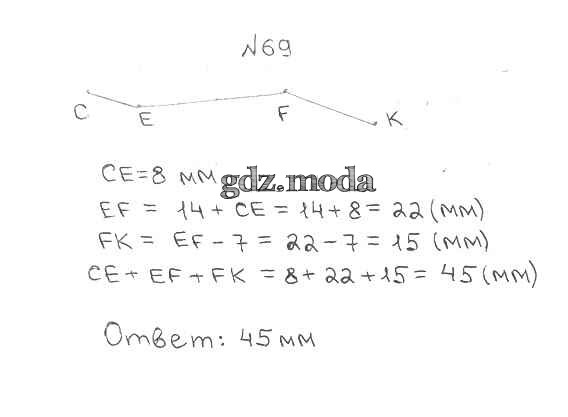 №69
C E F K
CE=8 мм gdz.moda
EF = 14 + CE = 14+8 = 22 (мм)
FK = EF - 7 = 22 - 7 = 15 (мм)
CE + EF + FK = 8 + 22 + 15 = 45 (мм)
Ответ: 45 мм